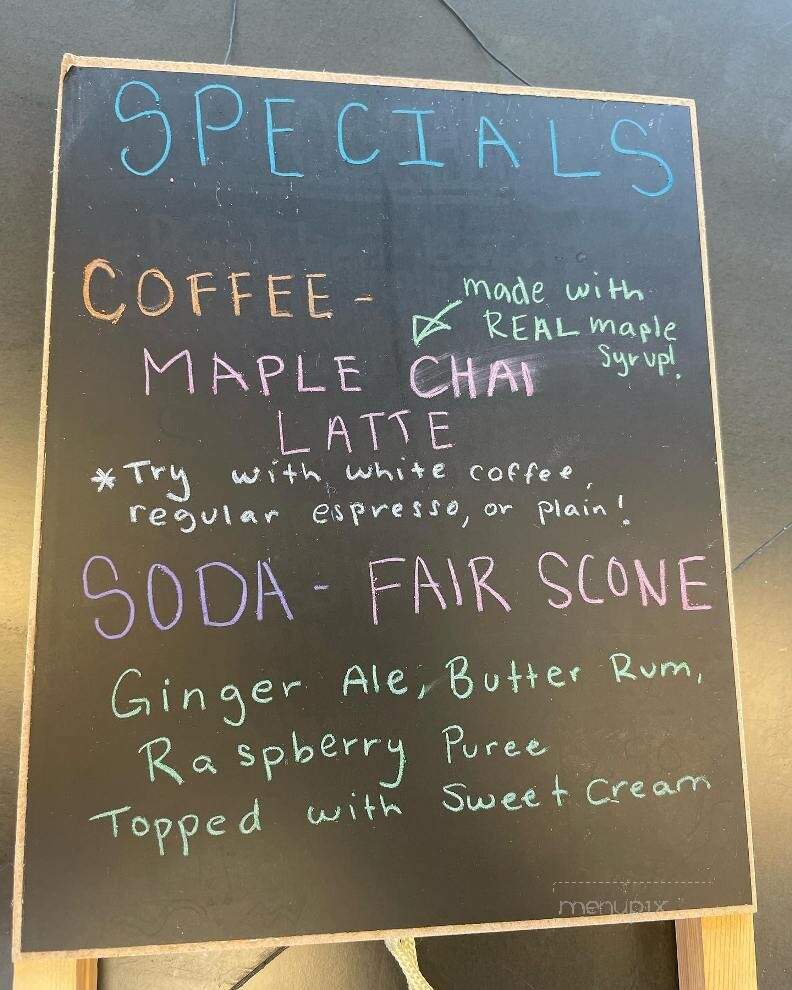 SPECIALS
COFFEE -
made with
REAL maple
syrup!
MAPLE CHAI
LATTE
* Try with white coffee,
regular espresso, or plain!
SODA - FAIR SCONE
Ginger Ale, Butter Rum,
Raspberry Puree
Topped with Sweet Cream
menupix